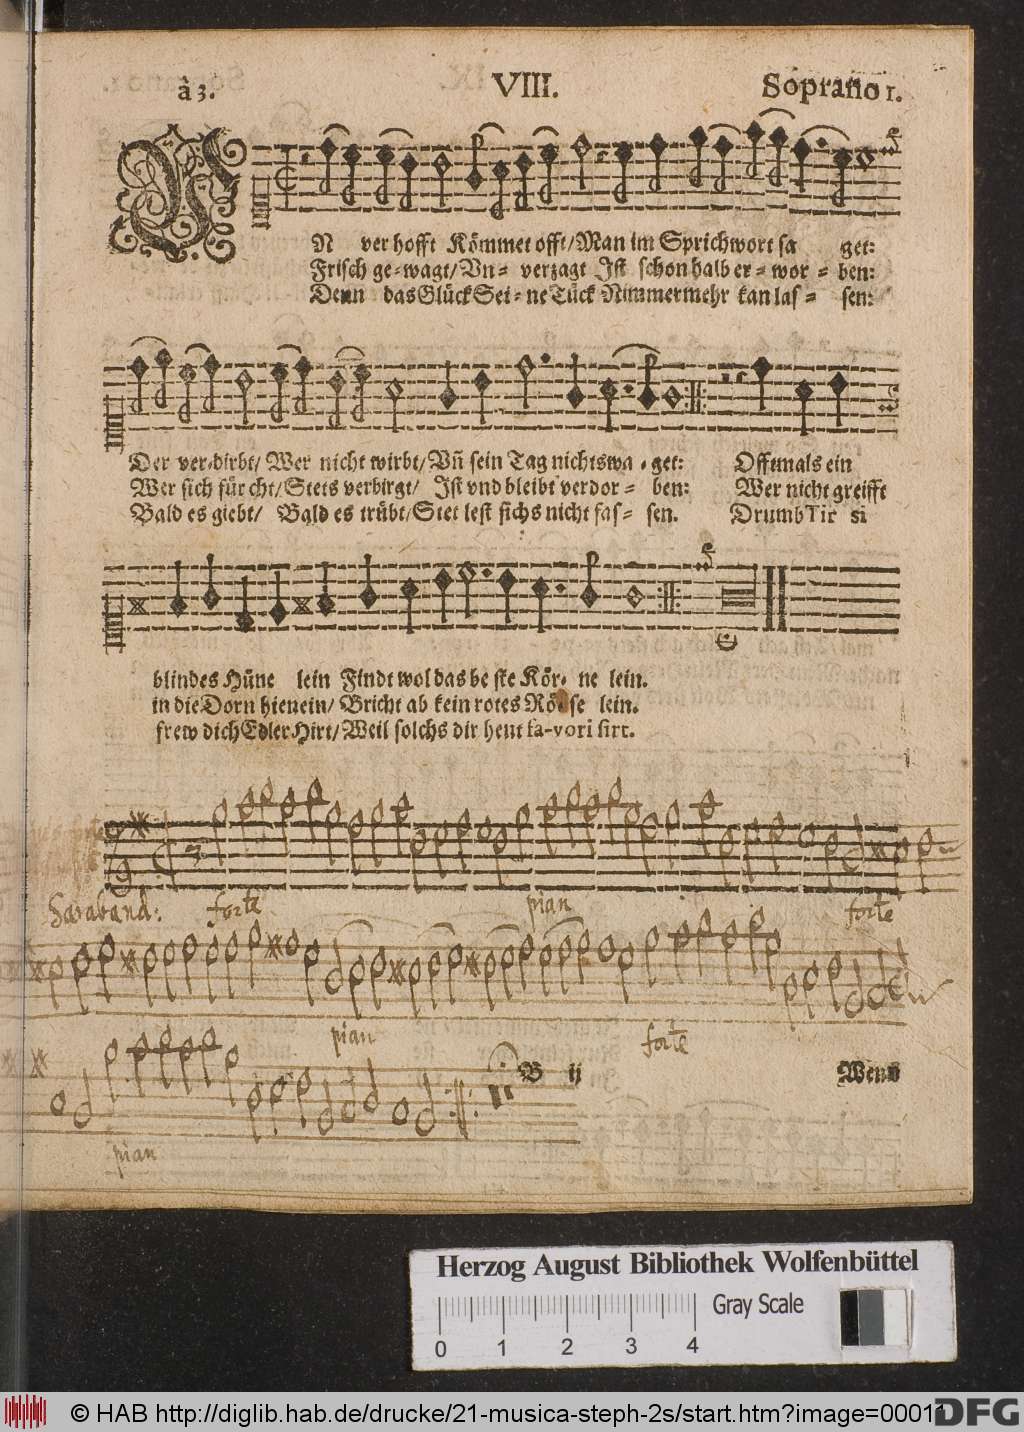 à 3. VIII. Soprano 1.
UN verhofft Kömmet offt/Man im Sprichwort sa get:
Frisch ge-wagt/Vn- verzagt Ist schon halb er-wor-ben:
Denn das Glück Sei-ne Tück Nimmermehr kan las-sen:
Der ver-dirbt/ Wer nicht wirbt/Vñ sein Tag nichts wa-get: Offtmals ein
Wer sich für cht/Stets verbirgt/ Ist vnd bleibt verdor-ben: Wer nicht greifft
Bald es giebt/ Bald es trübt/Stet lest sichs nicht fas-sen. Drumb Tir si
blindes Hüne lein Findt wol das be ste Kör-ne lein.
in die Dorn hienein/ Bricht ab kein rotes Rö-se lein.
frew dich Edler Hirt/Weil solchs dir heut fa-vori sirt.
Saraband: forte pian forte
pian forte
B ij Wenn
pian
Herzog August Bibliothek Wolfenbüttel
Gray Scale
0 1 2 3 4
© HAB http://diglib.hab.de/drucke/21-musica-steph-2s/start.htm?image=00011
DFG